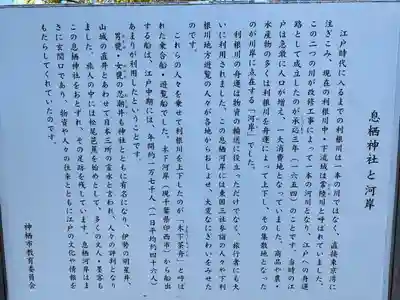 息栖神社と河岸
江戸時代に入るまでの利根川は一本の川ではなく、直接東京湾に
注ぎこみ、現在の利根川中・下流域は常陸川と呼ばれていました。
この二つの川が改修工事によって一本の川となり、江戸への舟運
路として成立したのが承応三年(一六五四)ことです。当時の江
戸は急激に人口が増え、一大消費地となっていました。商品や農
水産物の多くは利根川を舟運によって上下し、その集散地となった
のが川岸に点在する「河岸」でした。
利根川の舟運は物資の輸送に役立っただけでなく、旅行者にも大
いに利用されました。この息栖河岸には東国三社参詣の人々や利
根川地方遊覧の人々が各地からおしよせ、大変なにぎわいをみせた
のです。
これらの人々を乗せて利根川を上下したのが「木下茶舟」と呼ば
れた乗合船・遊覧船でした。木下河岸(現千葉県印西市)から船出
する船は、江戸中期には、年間約一万七千人(一日平均約四十六人)
あまりが利用したということです。
男甕・女甕の忍潮井も神社とともに有名になり、伊勢の明星井、
山城の直井とあわせて日本三所の霊水と言われ、人々の評判となり
ました。旅人の中には松尾芭蕉を始めとして、多くの文人・墨客も
この息栖神社をおとずれ、その足跡を残しています。息栖河岸はま
さに玄関口であり、物資や人々の往来とともに江戸の文化や情報を
もたらしてくれていたのです。
神栖市教育委員会